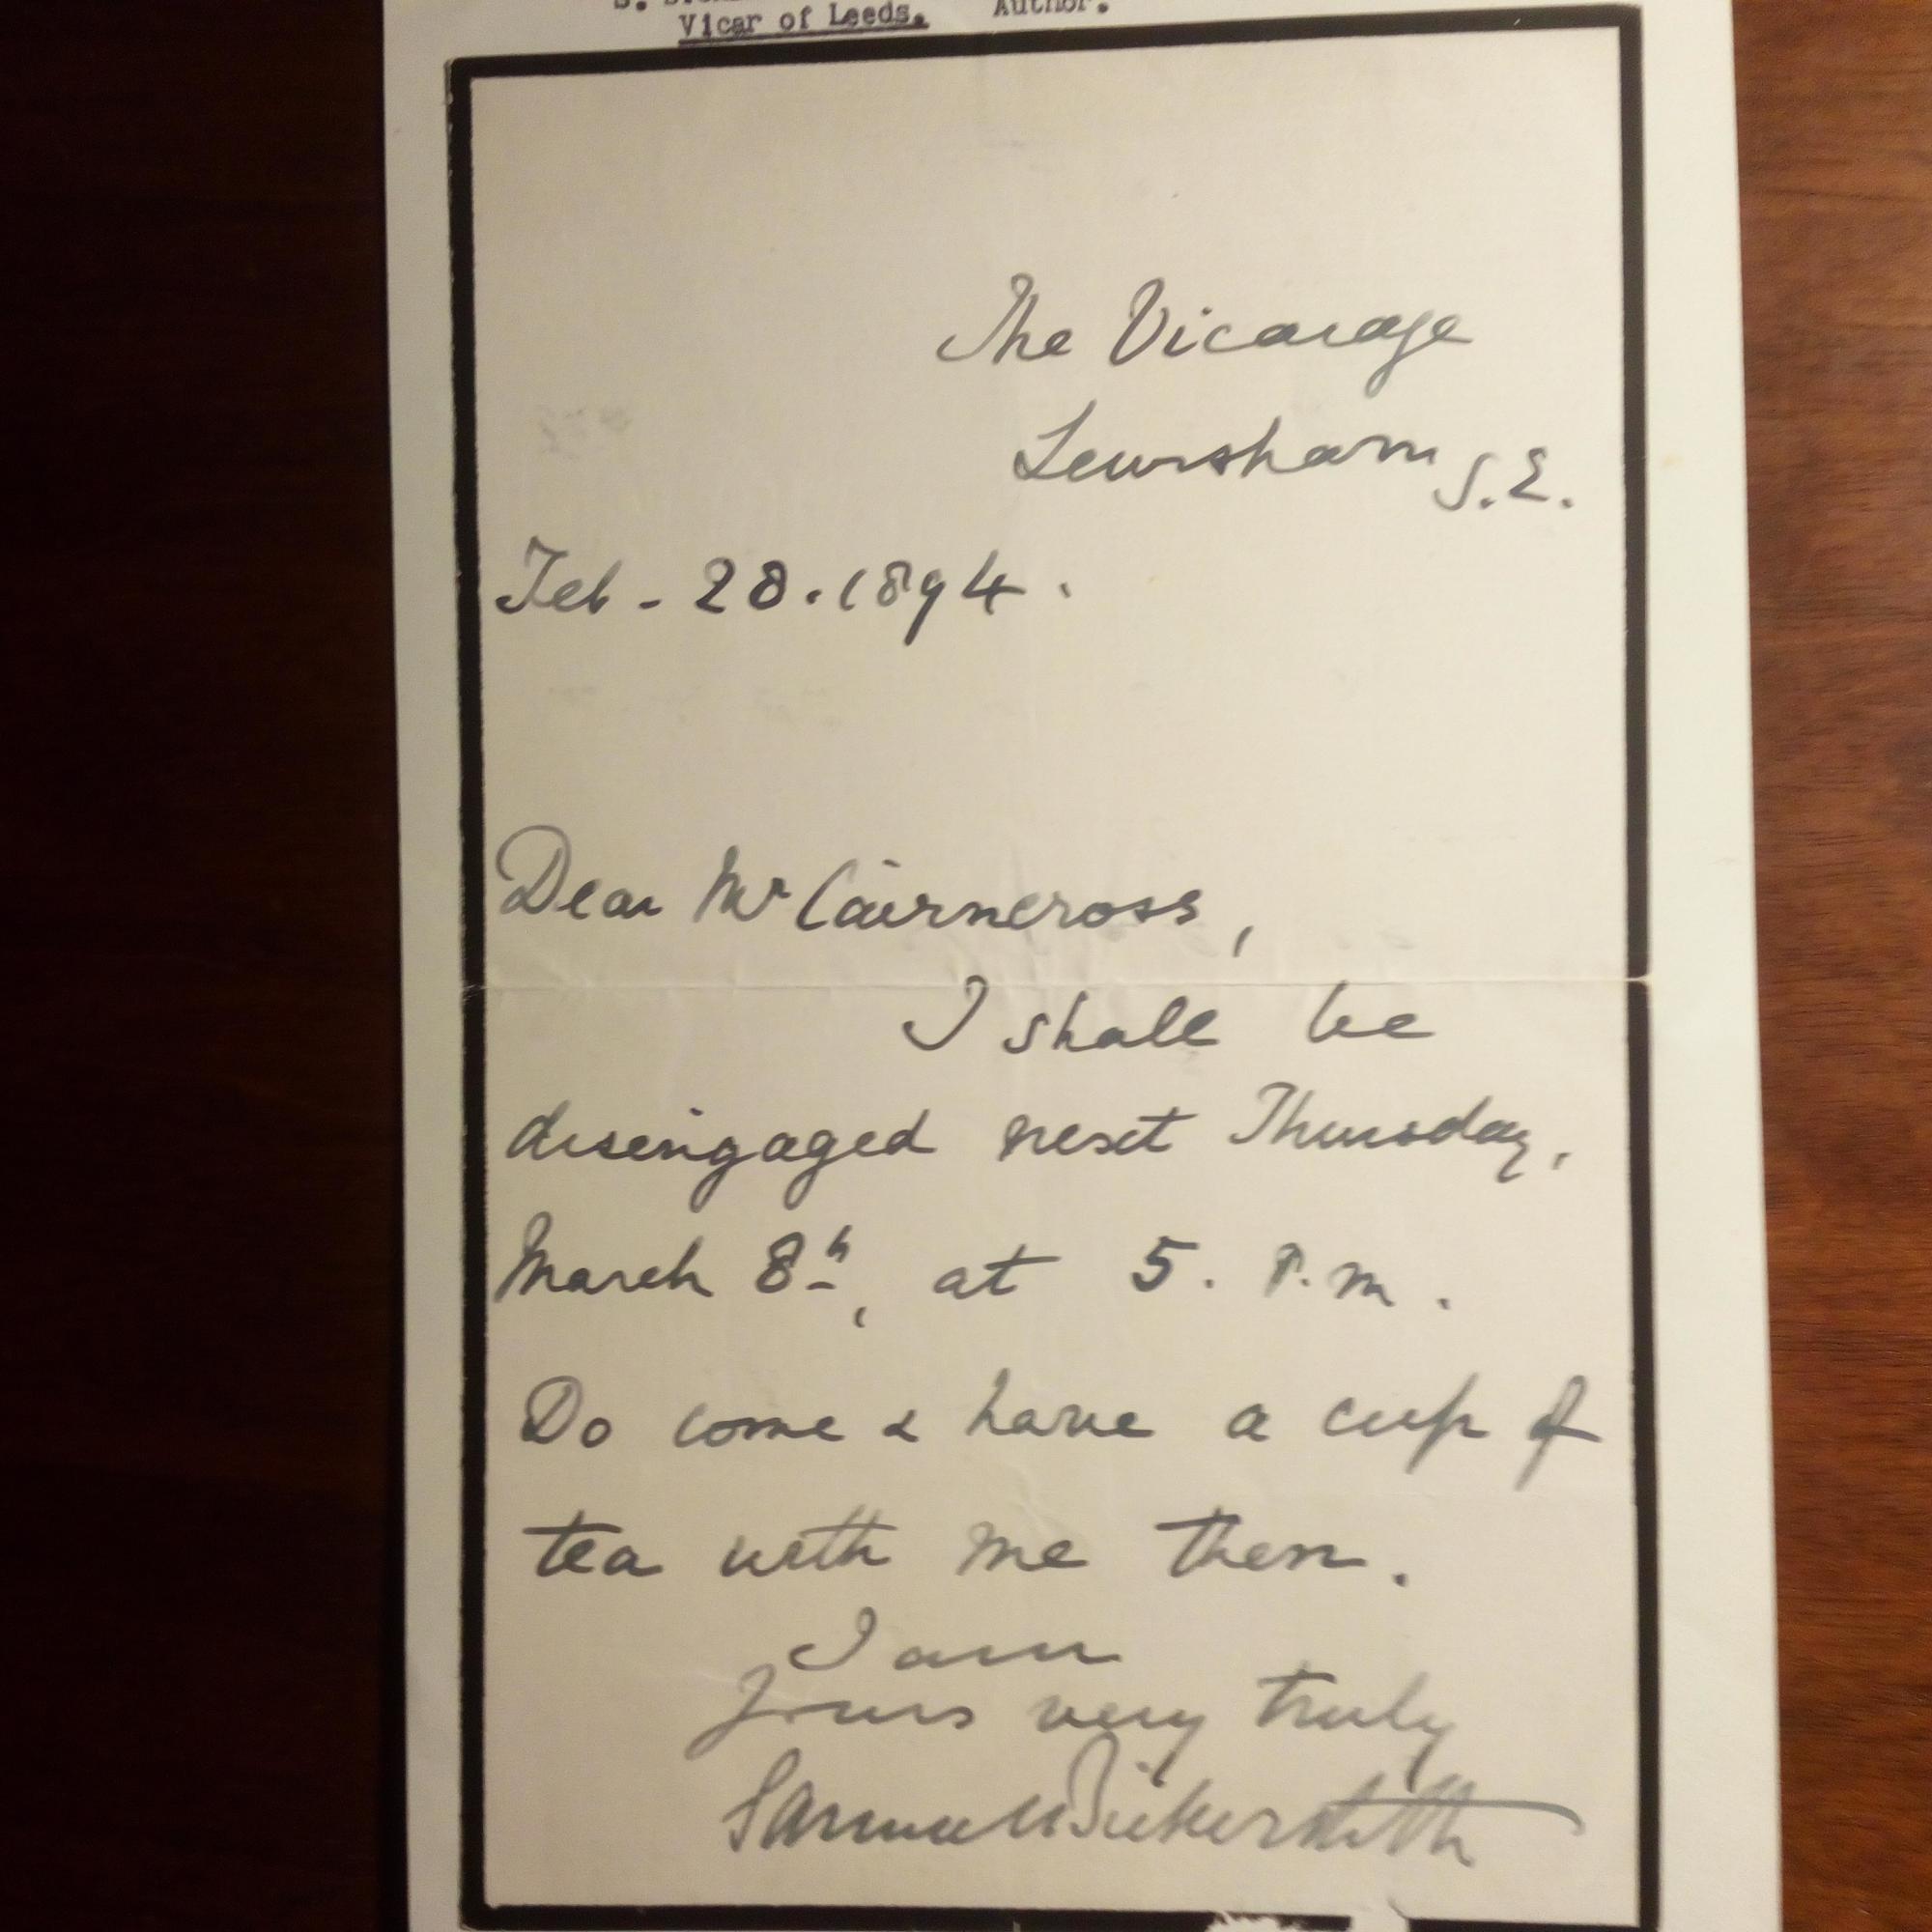 Author.
Vicar of Leeds.
The Vicarage
Lewisham S.E.
Feb - 28. 1894.
Dear Mr Cairncross,
I shall be
disengaged next Thursday,
March 8th, at 5. P.m.
Do come & have a cup of
tea with me then.
I am
Yours very truly
Samuel Bickersteth